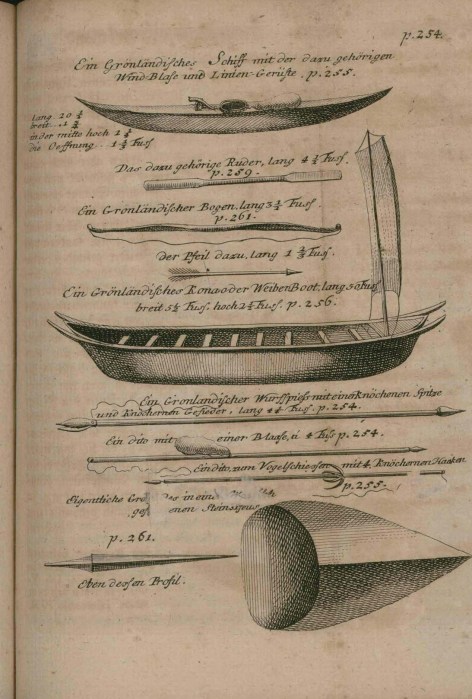 p. 254.
Ein Grönländisches Schiff mit der dazu gehörigen
Wind-Blase und Linien-Gerüste. p. 255.
lang 20
breit
in der mitte hoch
die Oeffnung Fuss
Das dazu gehörige Ruder, lang 4 Fuss.
p. 259.
Ein Grönländischer Bogen, lang 3 Fuss.
p. 261.
der Pfeil dazu, lang 1 Fuss.
Ein Grönländisches oder Weiber Boot, lang Fuss
breit 5½ Fuss. hoch 2½ Fuss. p. 256.
Ein Grönländischer Wurffpiess mit einer knöchenen Spitze
und Knöchernen Gefieder, lang Fuss. p. 254.
Ein dito mit einer Blaase, Fuss p. 254.
Ein dito, zum Vogelschiessen mit 4, Knöchernen Haaken
p. 255.
Eigentliche des in
enen
p. 261.
Eben dessen Profil.